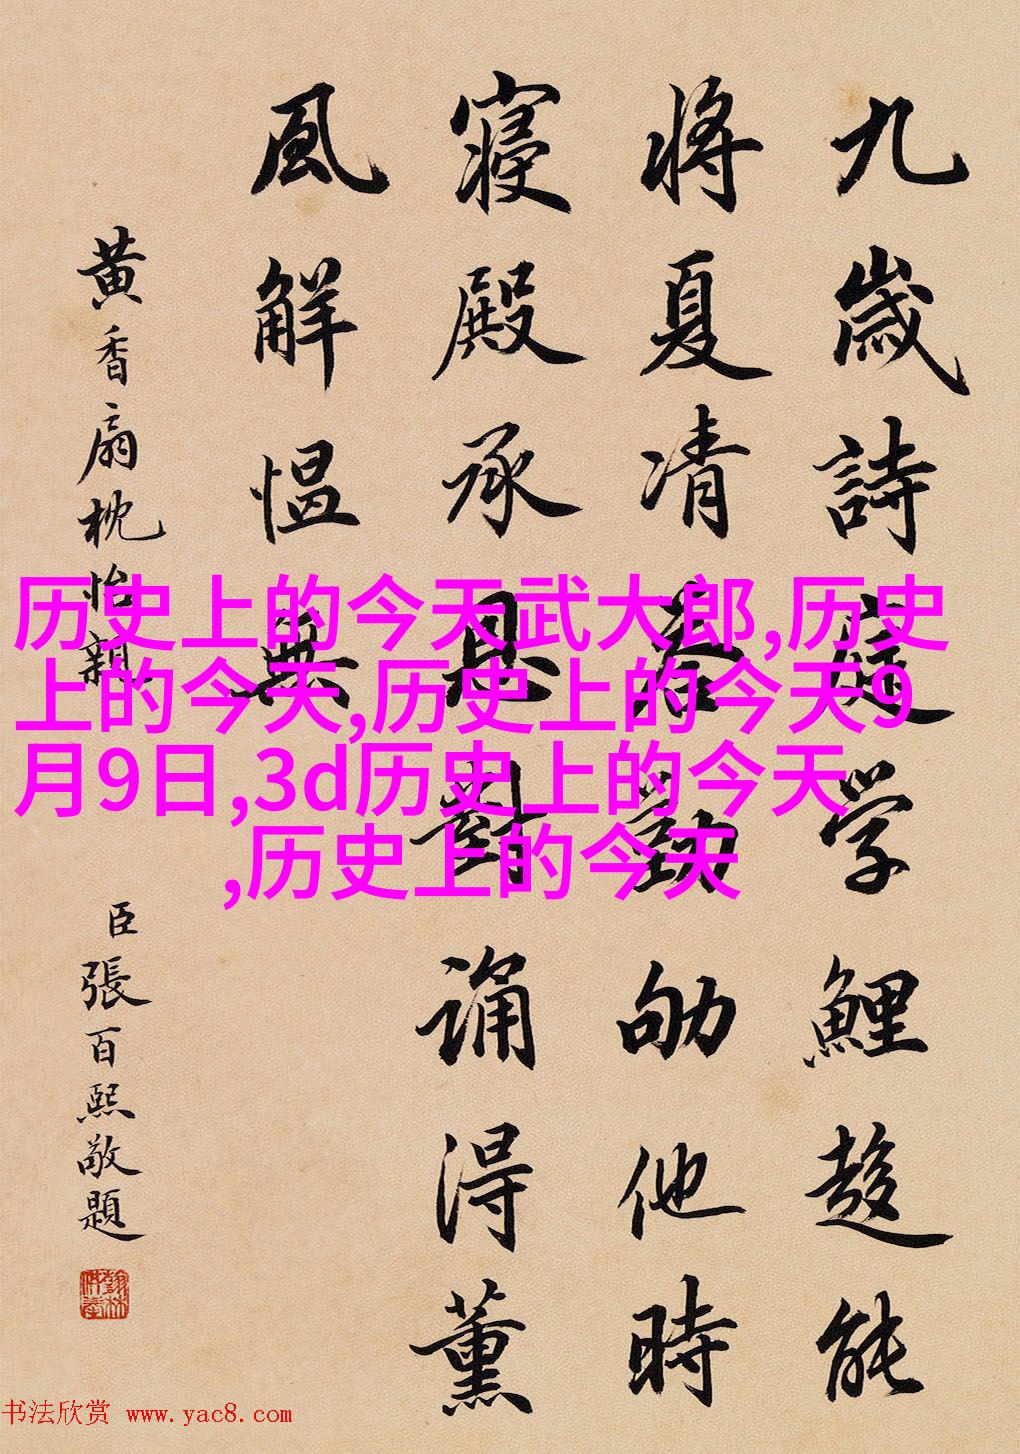 九歲詩庭学鯉趍能
将夏凊
劬他時
寝殿承恩對誦得薰
風解愠無
黄香扇枕怡親
臣張百熙敬題
历史上的今天武大郎,历史
上的今天,历史上的今天9
月9日,3d历史上的今天
,历史上的今天
书法欣赏 www.yac8.com